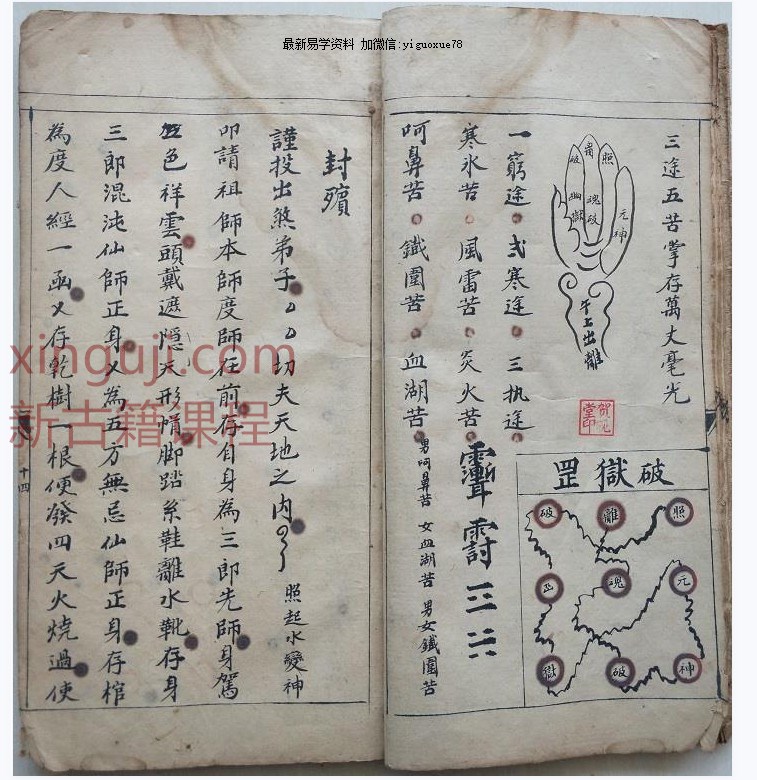 最新易学资料 加微信:yiguoxue78
三途五苦掌存萬丈毫光
照
破
幽獄
魂破
元神
午上出離
一窮途 弍寒途 三执途
寒氷苦 風雷苦 炎火苦
呵鼻苦 鐵圍苦 血湖苦
男呵鼻苦 女血湖苦 男女鐵圍苦
破獄罡
照 離 破
元 魂
神 破 獄
封殯
謹投出煞弟子 切夫天地之内 照起水變神
叩請祖師本師度師在前存自身為三郎先師身駕
五色祥雲頭戴遮隱天形帽脚踏糸鞋離水靴存身
三郎混沌仙師正身乂為五方無忌仙師正身存棺
為度人經一函乂存乾樹一根使發四天火燒過使
十四
xinguji.com
新古籍课程